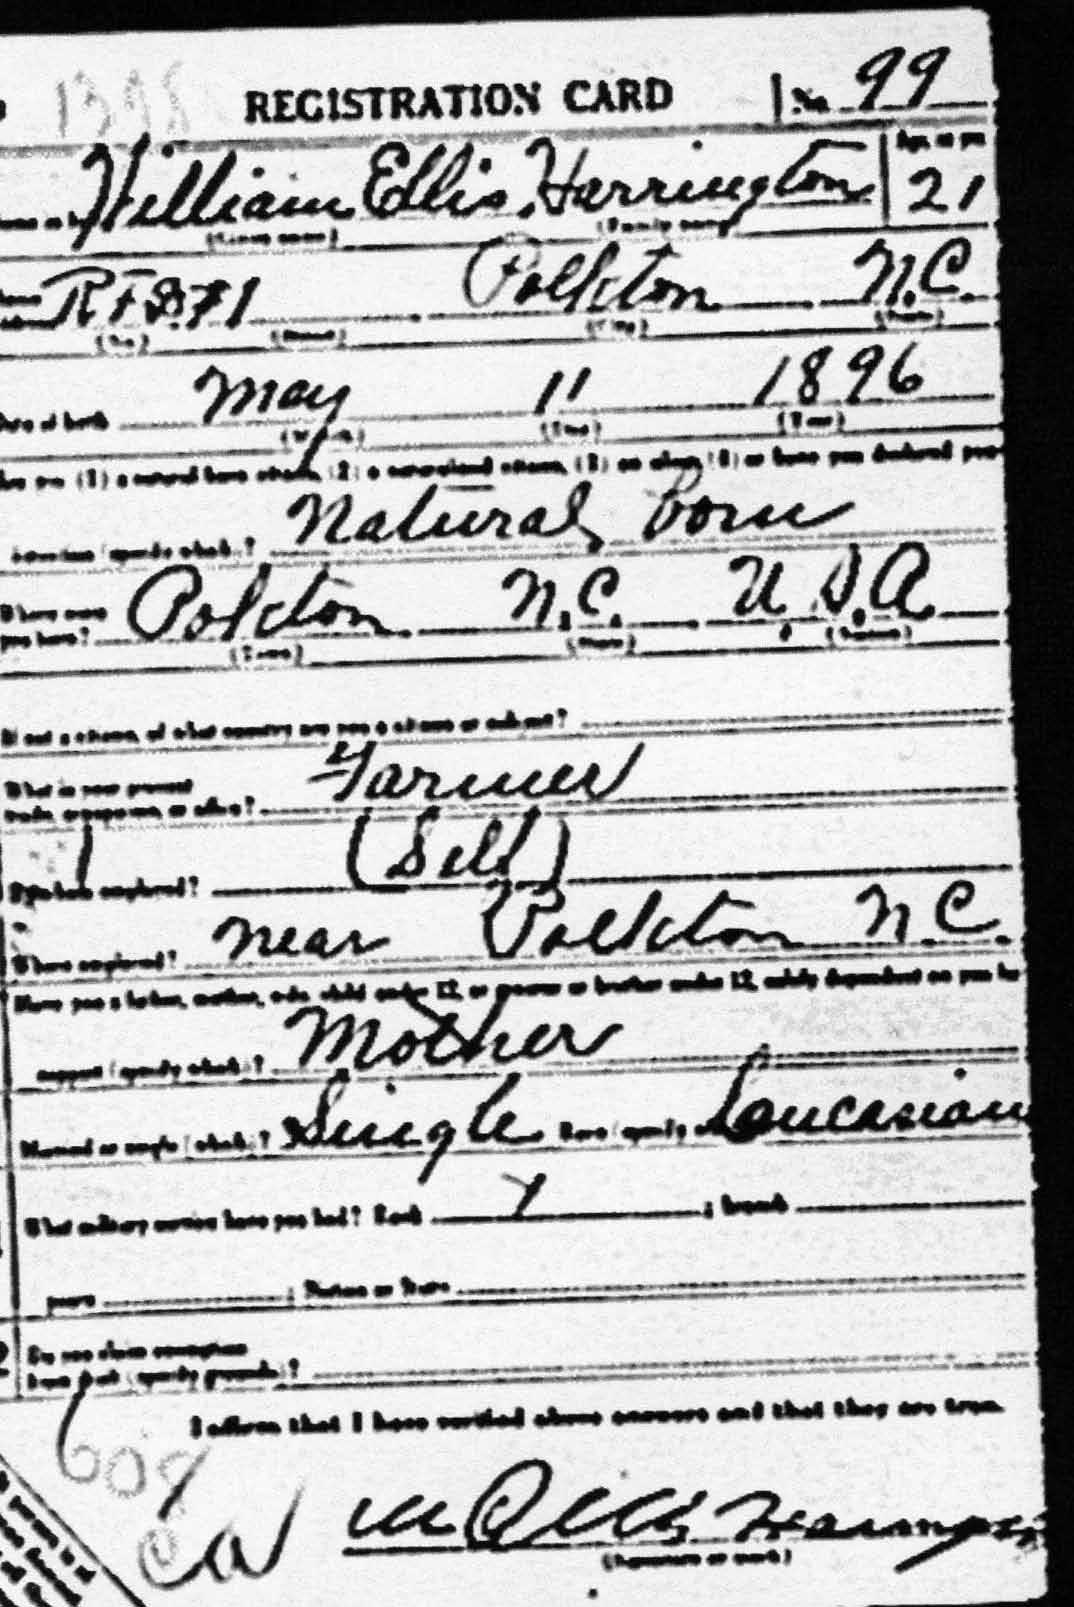 1398 REGISTRATION CARD No. 99
Age, in yrs.
William Ellis Harrington 21
(Given name) (Family name)
R.F.D. #1 Polkton N.C.
(No.) (Street) (City) (State)
Date of birth May 11 1896
(Month) (Day) (Year)
Are you (1) a natural born citizen, (2) a naturalized citizen, (3) an alien, (4) or have you declared your
intention (specify which)? Natural born
Where were
you born? Polkton N.C. U.S.A.
(Town) (State) (Nation)
If not a citizen, of what country are you a citizen or subject?
What is your present
trade, occupation, or office? Farmer
By whom employed? (Self)
Where employed? near Polkton N.C.
Have you a father, mother, wife, child under 12, or sister or brother under 12, solely dependent on you for
support (specify which)? Mother
Married or single (which)? Single Race (specify which)? Caucasian
What military service have you had? Rank ; branch
years ; Nation or State
Do you claim exemption
from draft (specify grounds)?
I affirm that I have verified above answers and that they are true.
609
Wm Ellis Harrington
(Signature or mark)